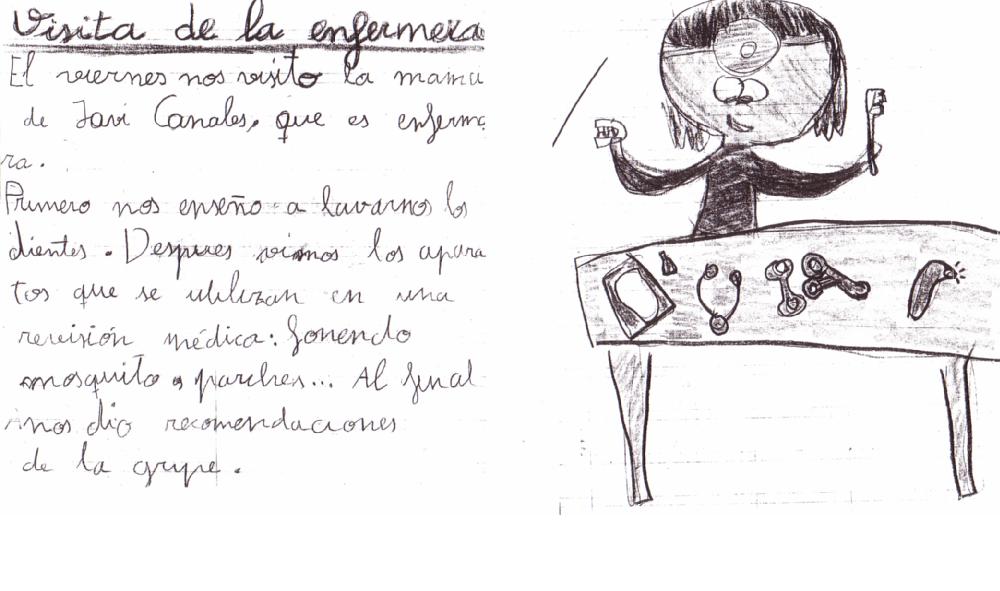 Visita de la enfermera
El viernes nos visito la mama
de Javi Canales, que es enferme
ra.
Primero nos enseño a lavarnos los
dientes. Despues vimos los apara
tos que se utilizan en una
revisión médica: fonendo
mosquito, parches... Al final
nos dio recomendaciones
de la gripe.